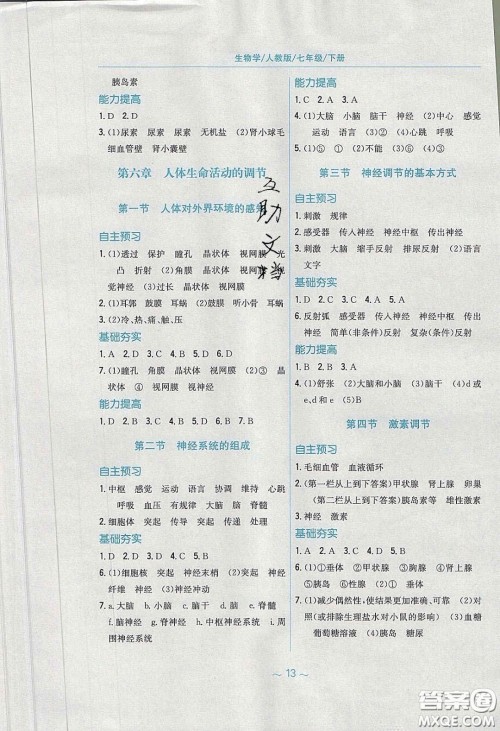 生物学/人教版/七年级/下册
胰岛素
能力提高
1. D 2. D
3. (1)尿素 尿素 尿素 无机盐 (2)肾小球毛
细血管壁 肾小囊壁
第六章 人体生命活动的调节
第一节 人体对外界环境的感知
自主预习
1. (1)透过 保护 瞳孔 晶状体 视网膜 光
凸 折射 (2)角膜 晶状体 视网膜
视觉神经 (3)过长 晶状体 视网膜
2. (1)耳郭 鼓膜 鼓膜 听小骨 耳蜗
(2)冷、热、痛、触、压
基础夯实
1. A 2. D 3. A 4. D 5. D 6. B
7. (1)瞳孔 角膜 晶状体 视网膜 (2)③
晶状体 ④ 视网膜 视神经
能力提高
1. B 2. D 3. D 4. B 5. B 6. B 7. D
第二节 神经系统的组成
自主预习
1. 中枢 感觉 运动 语言 协调 维持 心跳
呼吸 血压 有规律 大脑 脑 脊髓
2. 细胞体 突起 传导 突起 传递 处理
基础夯实
1. D 2. D 3. D 4. C 5. C
6. (1)细胞核 突起 神经末梢 (2)突起 神经
纤维 神经 (3)神经冲动
7. a.大脑 b.小脑 c.脑干 d.脑 e.脊髓
f.脑神经 g.脊神经 h.中枢神经系统 i.周
围神经系统
能力提高
1. C 2. A 3. A
4. (1)大脑 小脑 脑干 神经 (2)中心 感觉
运动 语言 (3)② (4)③ 心跳 呼吸
5. (1)① (2)⑤ (3)不能 (4)③
第三节 神经调节的基本方式
自主预习
1. 刺激 规律
2. 感受器 传入神经 神经中枢 传出神经
3. 刺激 大脑 缩手反射 排尿反射 (2)语言
文字
基础夯实
1. C 2. A 3. D 4. D 5. B
6. 反射弧 感受器 传入神经 神经中枢 传出
神经 简单(非条件)反射 复杂(条件)反射
能力提高
1. B 2. C 3. A
4. (1)舒张 (2)大脑和小脑 (3)脑干 (4)d或
e、d和e
第四节 激素调节
自主预习
1. 毛细血管 血液循环
2. (第一栏从上到下答案)甲状腺 肾上腺 卵巢
(第二栏从上到下答案)胰岛素等 雄性激素
3. 神经 激素
基础夯实
1. C 2. D 3. C 4. B 5. D
6. (1)①垂体 ②甲状腺 ③胸腺 ④肾上腺
⑤胰岛 (2)①垂体
7. (1)减少偶然性,使结果更加准确 (2)对
照(或排除手术对小鼠的影响) (3)血糖
葡萄糖溶液 (4)胰岛 糖尿
互助文档
~ 13 ~
答案圈
MXQE.COM